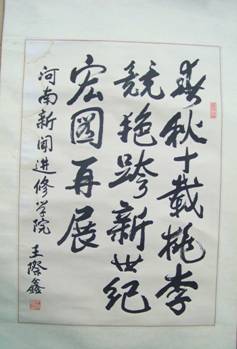 春秋十載桃李
競艳跨新世纪
宏图再展
河南新闻进修学院
王際鑫